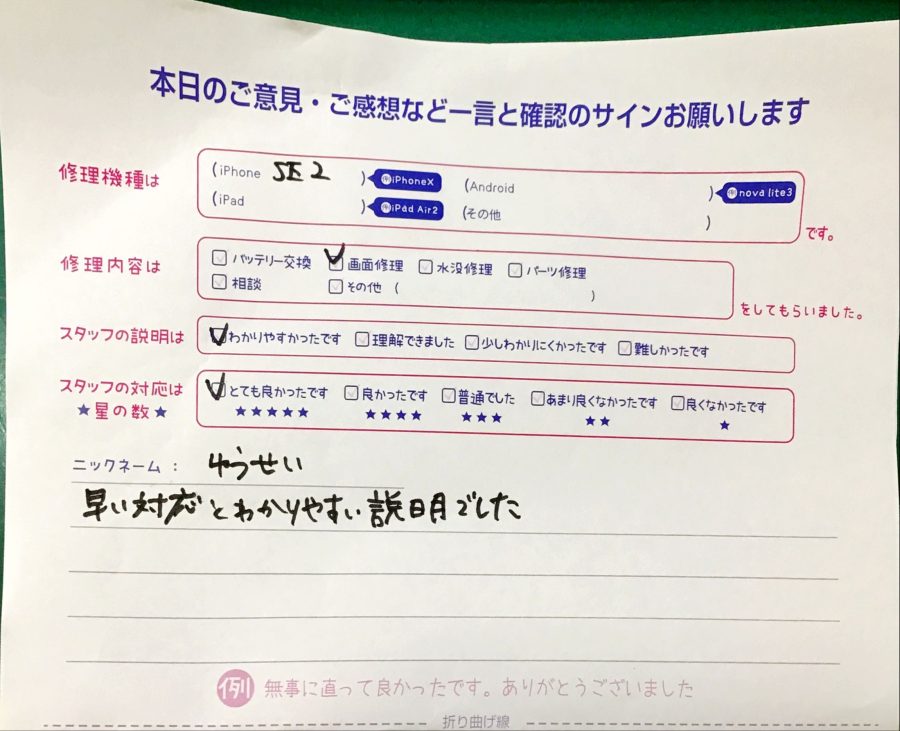 本日のご意見・ご感想など一言と確認のサインお願いします
修理機種は
(iPhone SE2 ) 例iPhoneX (Android ) 例nova lite3
(iPad ) 例iPad Air2 (その他 )
です。
修理内容は
バッテリー交換 画面修理 水没修理 パーツ修理
相談 その他 ( )
をしてもらいました。
スタッフの説明は わかりやすかったです 理解できました 少しわかりにくかったです 難しかったです
スタッフの対応は とても良かったです 良かったです 普通でした あまり良くなかったです 良くなかったです
★星の数★ ★★★★★ ★★★★ ★★★ ★★ ★
ニックネーム: ゆうせい
早い対応とわかりやすい説明でした
例 無事に直って良かったです。ありがとうございました
折り曲げ線